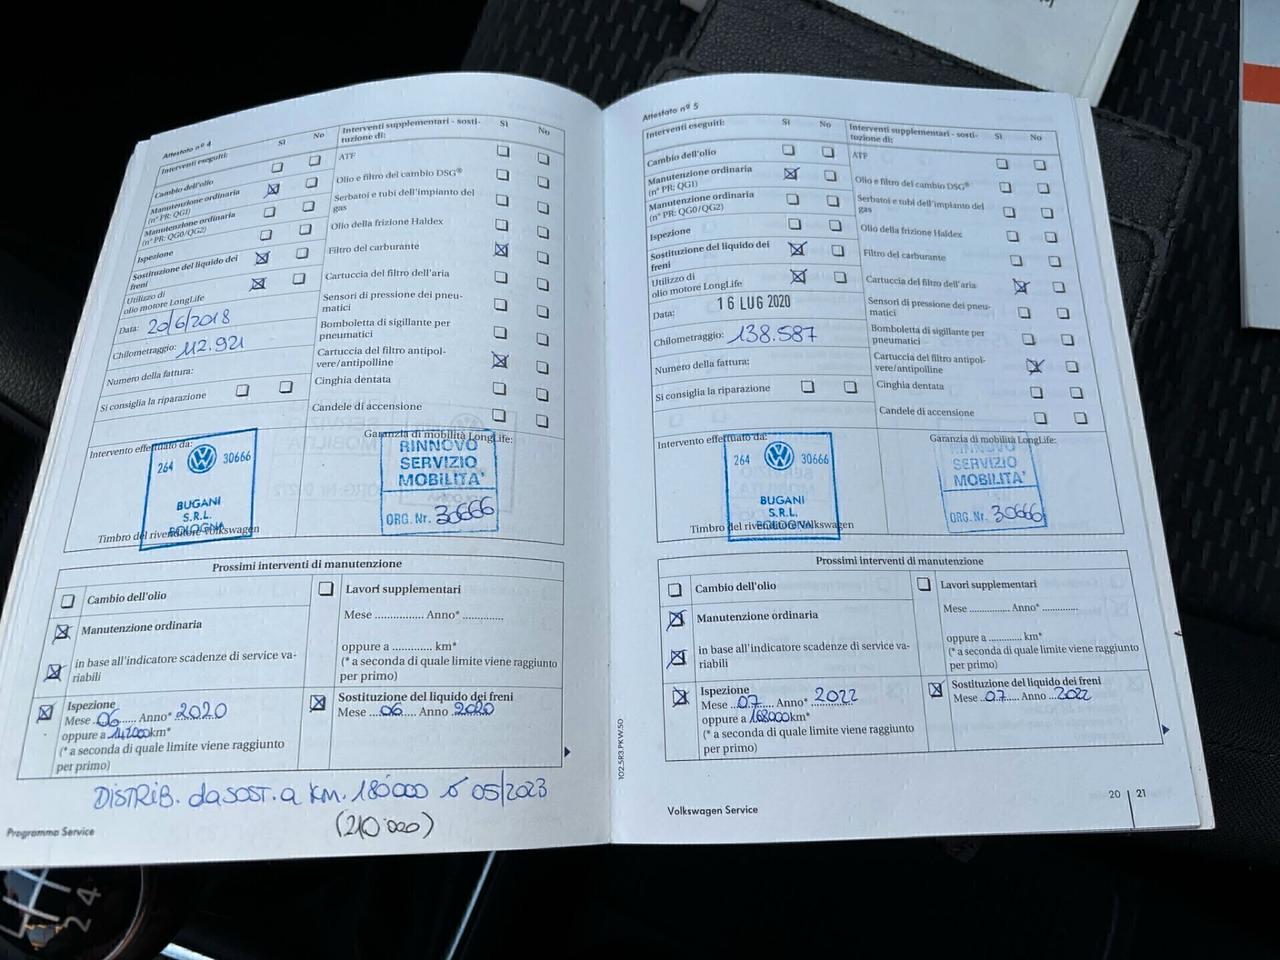 Attestato nº 4
Interventi eseguiti:
Sì
No
Cambio dell'olio
Manutenzione ordinaria
(nº PR: QG1)
Manutenzione ordinaria
(nº PR: QG0/QG2)
Ispezione
Sostituzione del liquido dei
freni
Utilizzo di
olio motore LongLife
Data: 20/6/2018
Chilometraggio: 112.921
Numero della fattura:
Si consiglia la riparazione
Interventi supplementari - sosti-
tuzione di:
Sì
No
ATF
Olio e filtro del cambio DSG®
Serbatoi e tubi dell'impianto del
gas
Olio della frizione Haldex
Filtro del carburante
Cartuccia del filtro dell'aria
Sensori di pressione dei pneu-
matici
Bomboletta di sigillante per
pneumatici
Cartuccia del filtro antipol-
vere/antipolline
Cinghia dentata
Candele di accensione
Intervento effettuato da:
264 30666
BUGANI
S.R.L.
BOLOGNA
Timbro del rivenditore Volkswagen
Garanzia di mobilità LongLife:
RINNOVO
SERVIZIO
MOBILITA'
ORG. Nr. 30666
Prossimi interventi di manutenzione
Cambio dell'olio
Manutenzione ordinaria
in base all'indicatore scadenze di service va-
riabili
Ispezione
Mese ..06...... Anno* 2020
oppure a 142000km*
(* a seconda di quale limite viene raggiunto
per primo)
Lavori supplementari
Mese ................ Anno* .............
oppure a ............ km*
(* a seconda di quale limite viene raggiunto
per primo)
Sostituzione del liquido dei freni
Mese ....06..... Anno ..2020
DISTRIB. da SOST. a KM. 180000 o 05/2023
(210'000)
Programma Service
Attestato nº 5
Interventi eseguiti:
Sì
No
Cambio dell'olio
Manutenzione ordinaria
(nº PR: QG1)
Manutenzione ordinaria
(nº PR: QG0/QG2)
Ispezione
Sostituzione del liquido dei
freni
Utilizzo di
olio motore LongLife
Data: 16 LUG 2020
Chilometraggio: 138.587
Numero della fattura:
Si consiglia la riparazione
Interventi supplementari - sosti-
tuzione di:
Sì
No
ATF
Olio e filtro del cambio DSG®
Serbatoi e tubi dell'impianto del
gas
Olio della frizione Haldex
Filtro del carburante
Cartuccia del filtro dell'aria
Sensori di pressione dei pneu-
matici
Bomboletta di sigillante per
pneumatici
Cartuccia del filtro antipol-
vere/antipolline
Cinghia dentata
Candele di accensione
Intervento effettuato da:
264 30666
BUGANI
S.R.L.
BOLOGNA
Timbro del rivenditore Volkswagen
Garanzia di mobilità LongLife:
RINNOVO
SERVIZIO
MOBILITA'
ORG. Nr. 30666
Prossimi interventi di manutenzione
Cambio dell'olio
Manutenzione ordinaria
in base all'indicatore scadenze di service va-
riabili
Ispezione
Mese ...07...... Anno* 2022
oppure a 168000km*
(* a seconda di quale limite viene raggiunto
per primo)
Lavori supplementari
Mese .............. Anno* .............
oppure a ............ km*
(* a seconda di quale limite viene raggiunto
per primo)
Sostituzione del liquido dei freni
Mese ..07..... Anno ...2022
102.5R3.PKW.50
Volkswagen Service
20 | 21
2 4